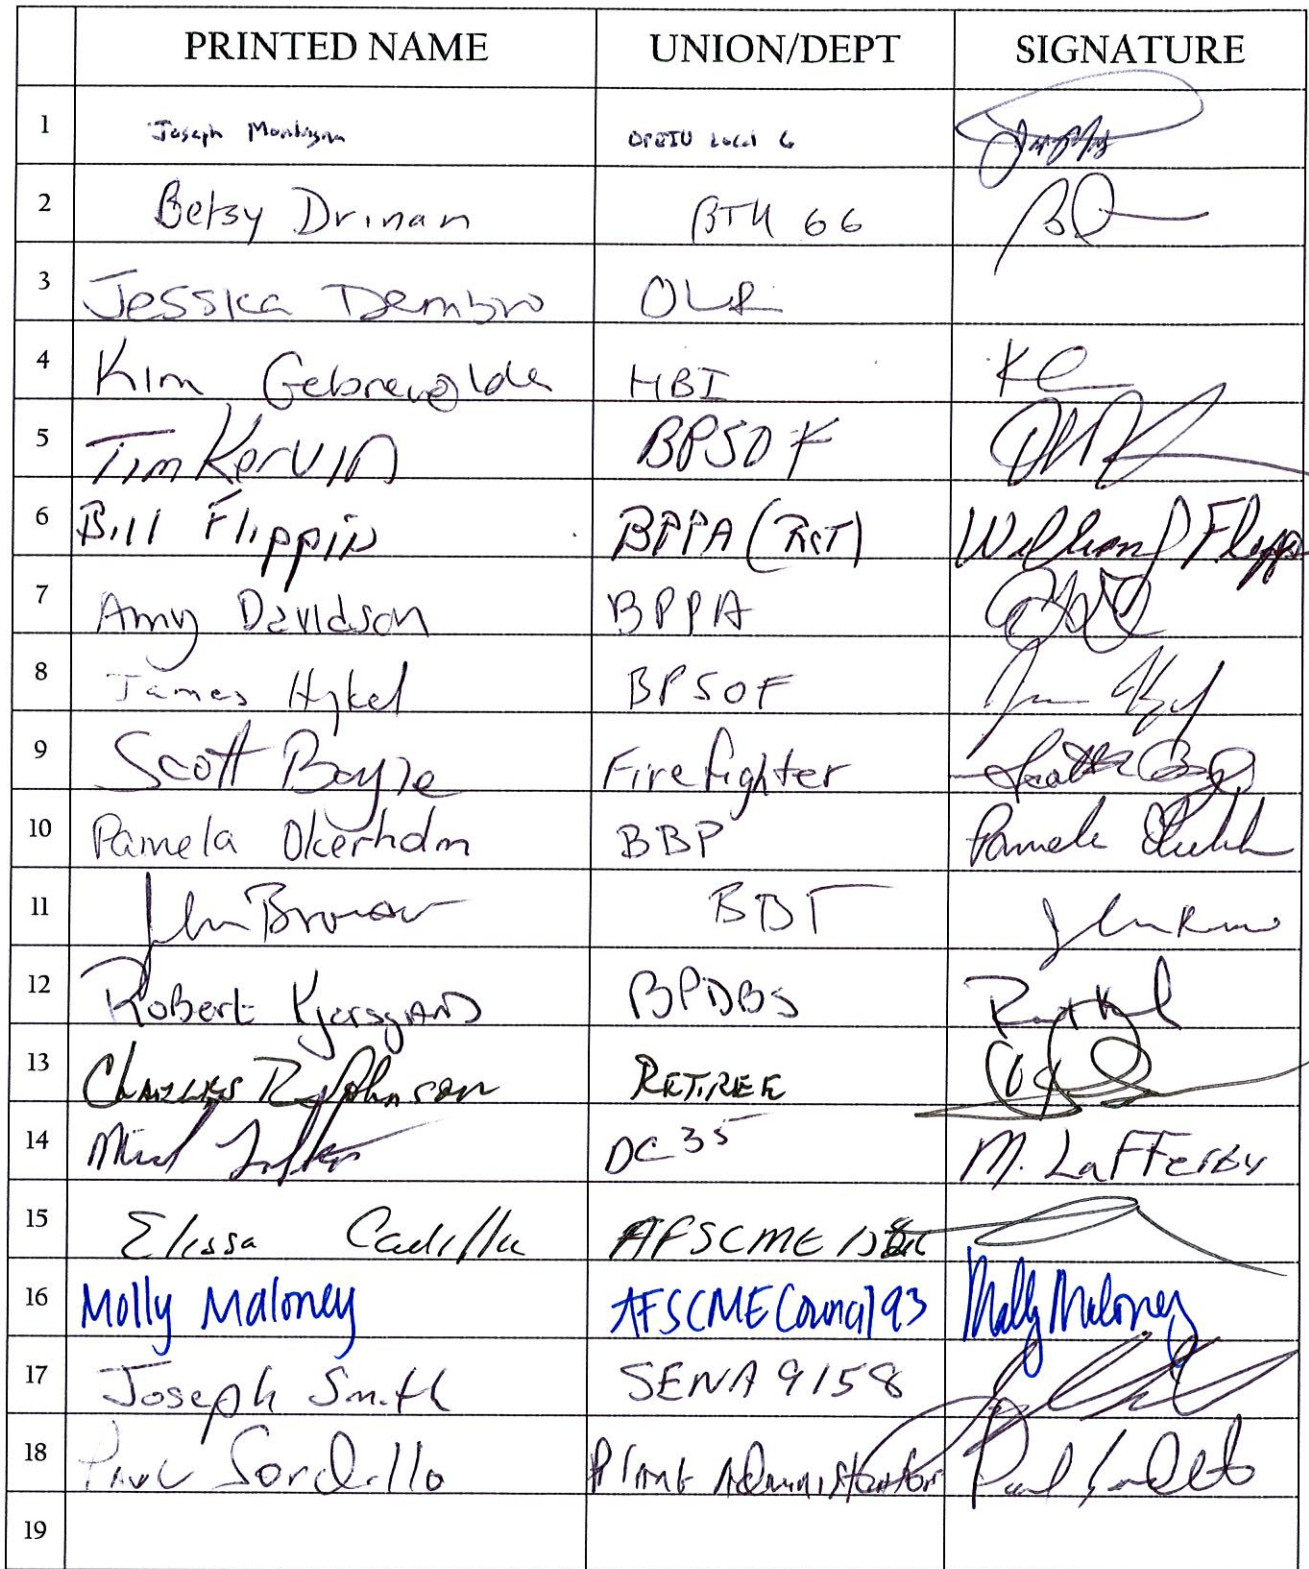 PRINTED NAME UNION/DEPT SIGNATURE
1 Joseph OPEIU Local 6
2 Betsy Drinan BTU 66
3 Jessica Dembro OLR
4 Kim Gebrewolde HBI
5 Tim Kervin BPSOF
6 Bill Flippin BPPA (RET) William J Flippin
7 Amy Davidson BPPA
8 James Hykel BPSOF
9 Scott Boyle Firefighter
10 Pamela Okerholm BBP Pamela
11 Brown
12 Robert Kjersgard BPDBS
13 Charles R Johnson RETIREE
14 DC 35 M. LaFFerty
15 Elissa Cadillic AFSCME
16 Molly Maloney AFSCME Council 93 Molly Maloney
17 Joseph Smith SENA 9158
18 Paul Sordillo Plant Administrator Paul
19